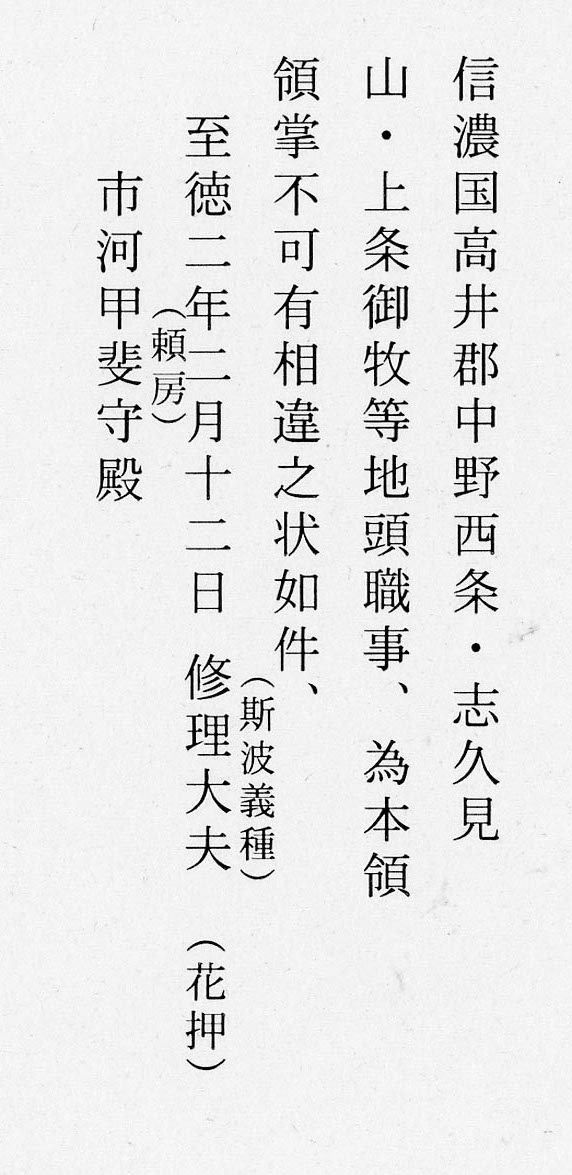 信濃国高井郡中野西条・志久見
山・上条御牧等地頭職事、為本領
領掌不可有相違之状如件、
（斯波義種）
至徳二年二月十二日　修理大夫　（花押）
（頼房）
市河甲斐守殿